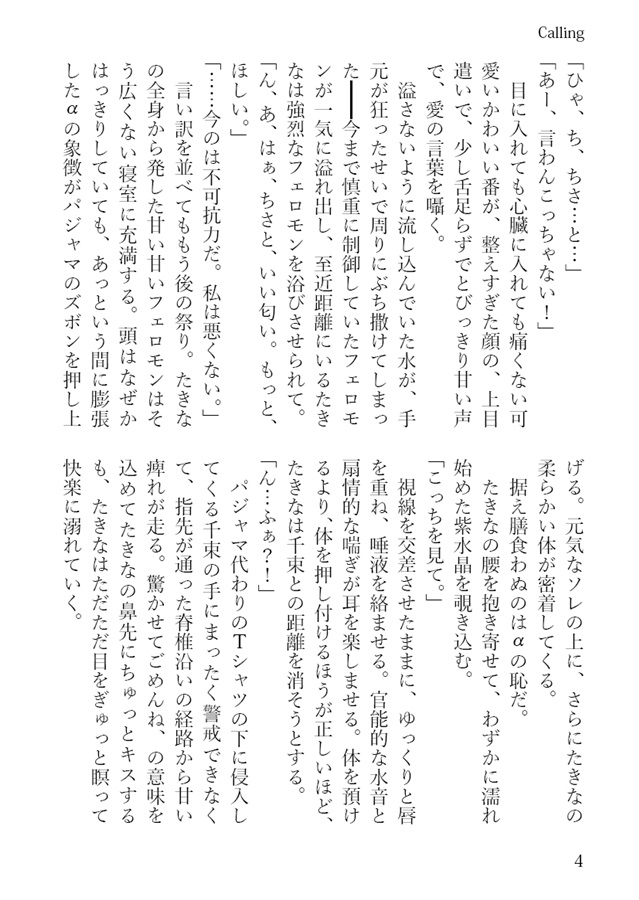 Calling
「ひゃ、ち、ちさ…と…」
「あー、言わんこっちゃない！」
　目に入れても心臓に入れても痛くない可
愛いかわいい番が、整えすぎた顔の、上目
遣いで、少し舌足らずでとびっきり甘い声
で、愛の言葉を囁く。
　溢さないように流し込んでいた水が、手
元が狂ったせいで周りにぶち撒けてしまっ
た――今まで慎重に制御していたフェロモ
ンが一気に溢れ出し、至近距離にいるたき
なは強烈なフェロモンを浴びさせられて。
「ん、あ、はぁ、ちさと、いい匂い。もっと、
ほしい。」
「……今のは不可抗力だ。私は悪くない。」
　言い訳を並べてももう後の祭り。たきな
の全身から発した甘い甘いフェロモンはそ
う広くない寝室に充満する。頭はなぜか
はっきりしていても、あっという間に膨張
したαの象徴がパジャマのズボンを押し上
げる。元気なソレの上に、さらにたきなの
柔らかい体が密着してくる。
　据え膳食わぬのはαの恥だ。
　たきなの腰を抱き寄せて、わずかに濡れ
始めた紫水晶を覗き込む。
「こっちを見て。」
　視線を交差させたままに、ゆっくりと唇
を重ね、唾液を絡ませる。官能的な水音と
扇情的な喘ぎが耳を楽しませる。体を預け
るより、体を押し付けるほうが正しいほど、
たきなは千束との距離を消そうとする。
「ん…ふぁ？！」
　パジャマ代わりのTシャツの下に侵入し
てくる千束の手にまったく警戒できなく
て、指先が通った脊椎沿いの経路から甘い
痺れが走る。驚かせてごめんね、の意味を
込めてたきなの鼻先にちゅっとキスする
も、たきなはただただ目をぎゅっと瞑って
快楽に溺れていく。
4